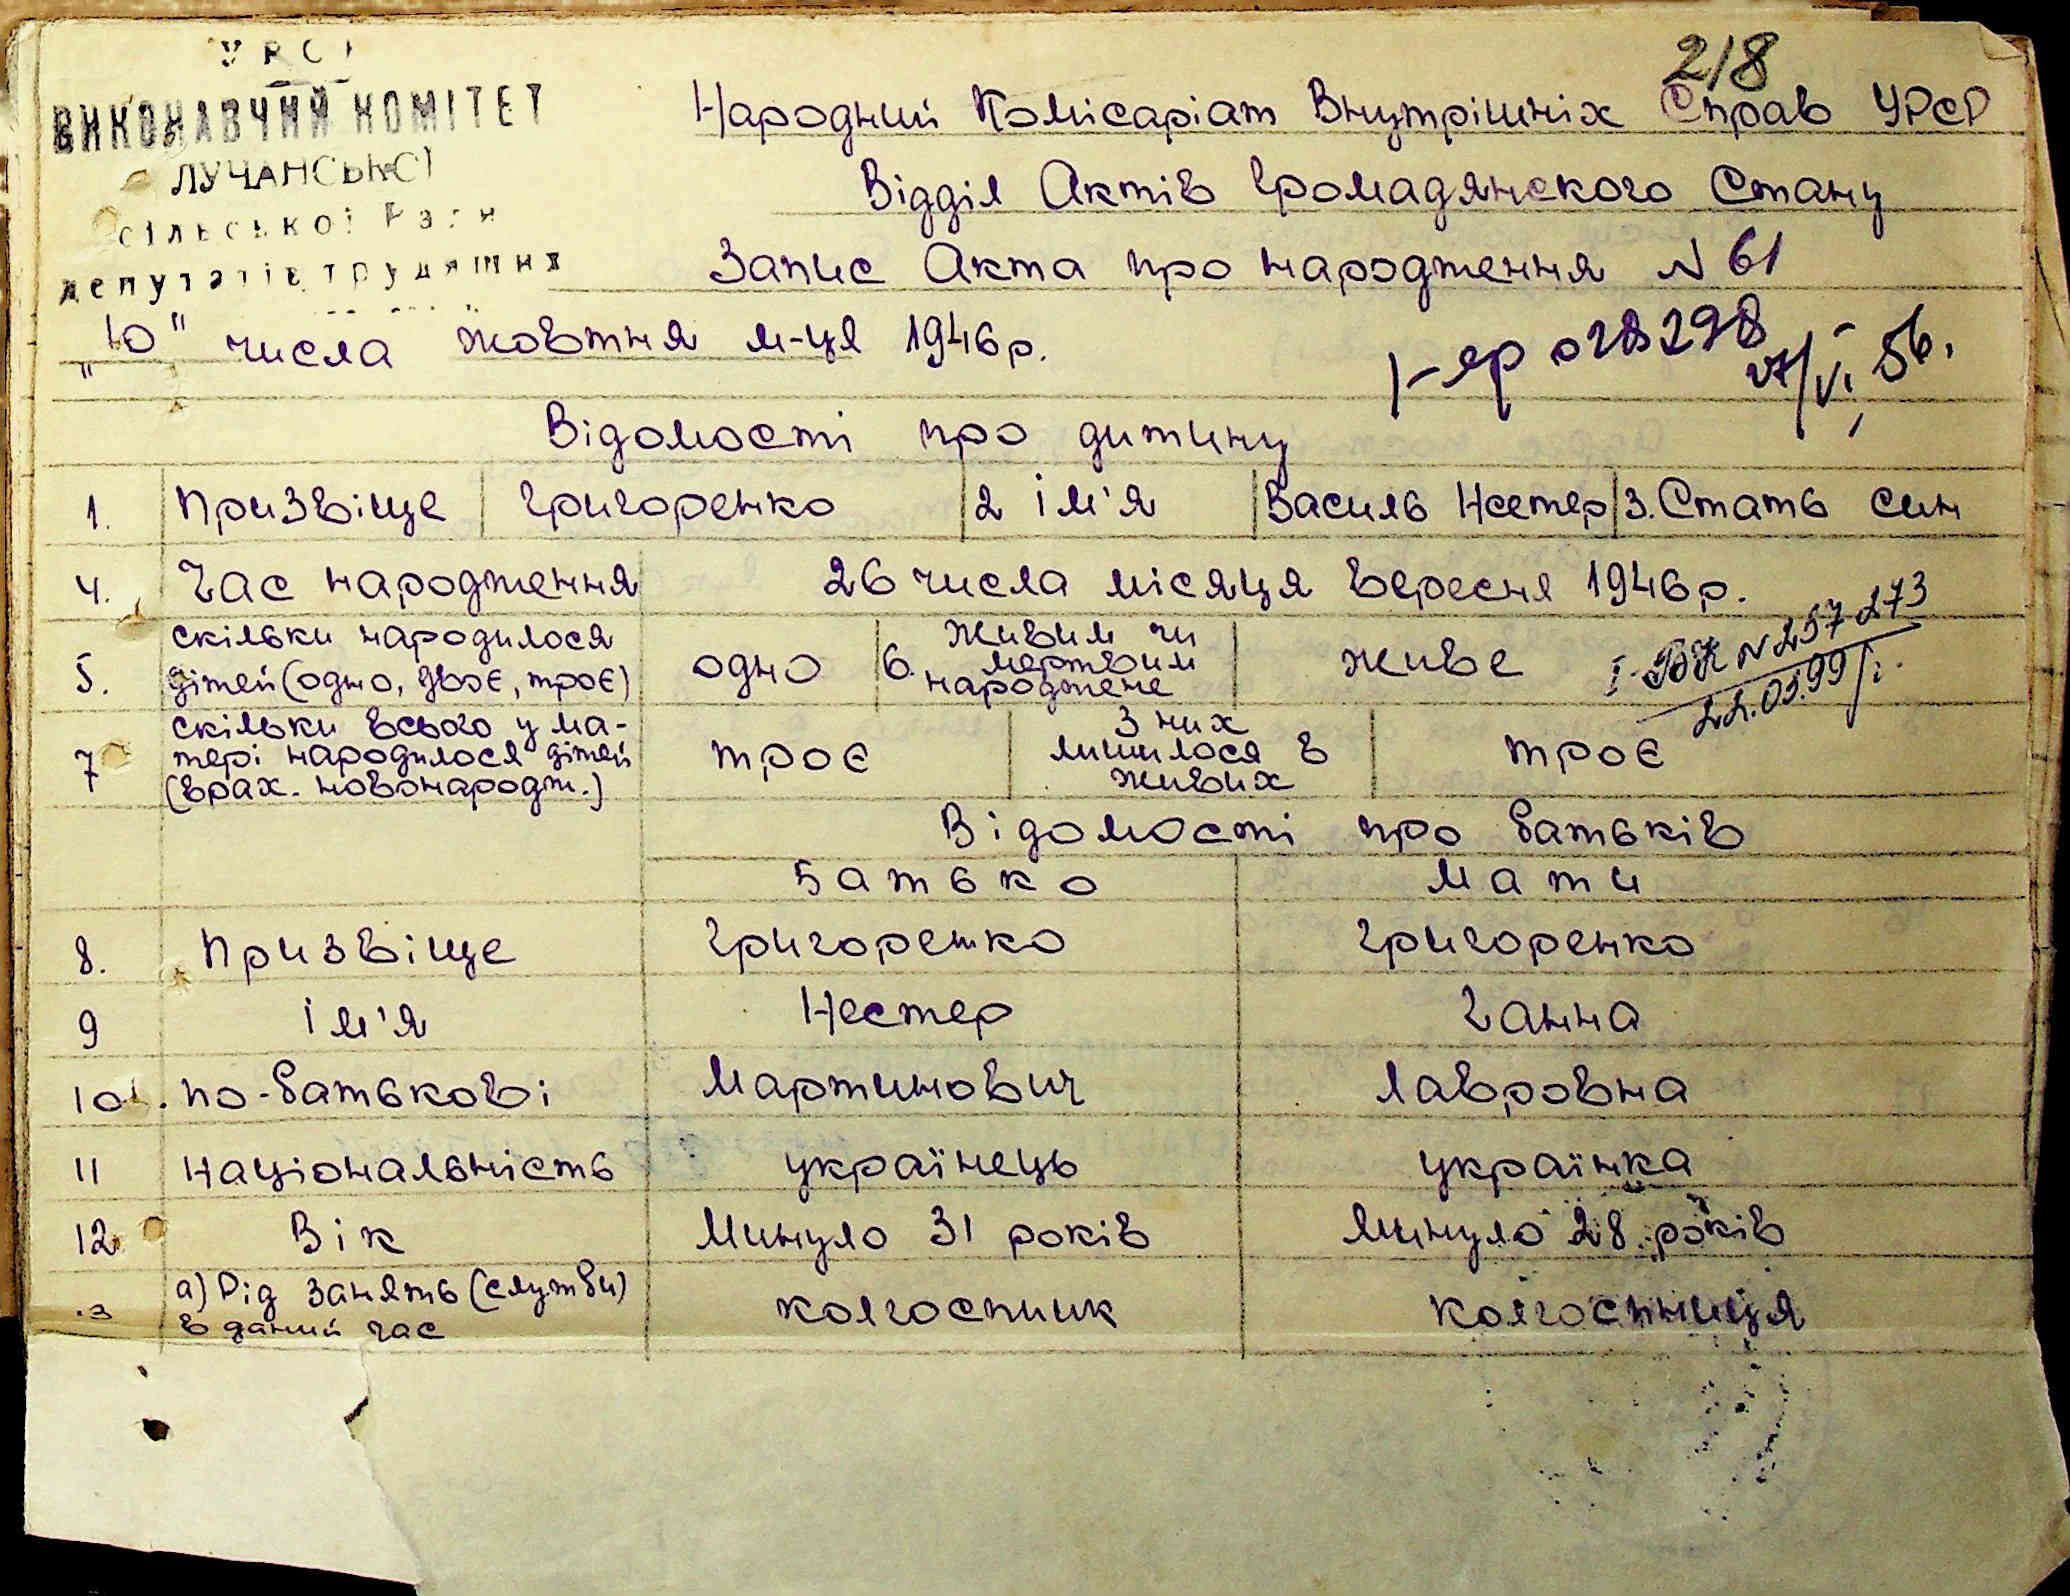 218
УРСР
ВИКОНАВЧИЙ КОМІТЕТ
ЛУЧАНСЬКОЇ
сільської Ради
депутатів трудящих
Народний Комісаріат Внутрішніх Справ УРСР
Відділ Актів Громадянского Стану
Запис Акта про народження N 61
„10" числа жовтня м-ця 1946 р.
028298
27/VI 56.
Відомості про дитину
1. Призвіще Григоренко 2 ім'я Василь Нестер 3. Стать син
4. Час народження 26 числа місяця вересня 1946 р.
5. скільки народилося дітей (одно, двоє, троє) одно 6. живим чи мертвим народжене живе
I-БК N 257273
22.05.99 р.
7 скільки всього у матері народилося дітей (врах. новонародж.) троє З них лишилося в живих троє
Відомості про батьків
Батько Мати
8. Призвіще Григоренко Григоренко
9 ім'я Нестер Ганна
10. по-батькові Мартинович Лавровна
11 національність українець українка
12 Вік Минуло 31 років Минуло 28 років
13 а) Рід занять (служби) в даний час колгоспник колгоспниця